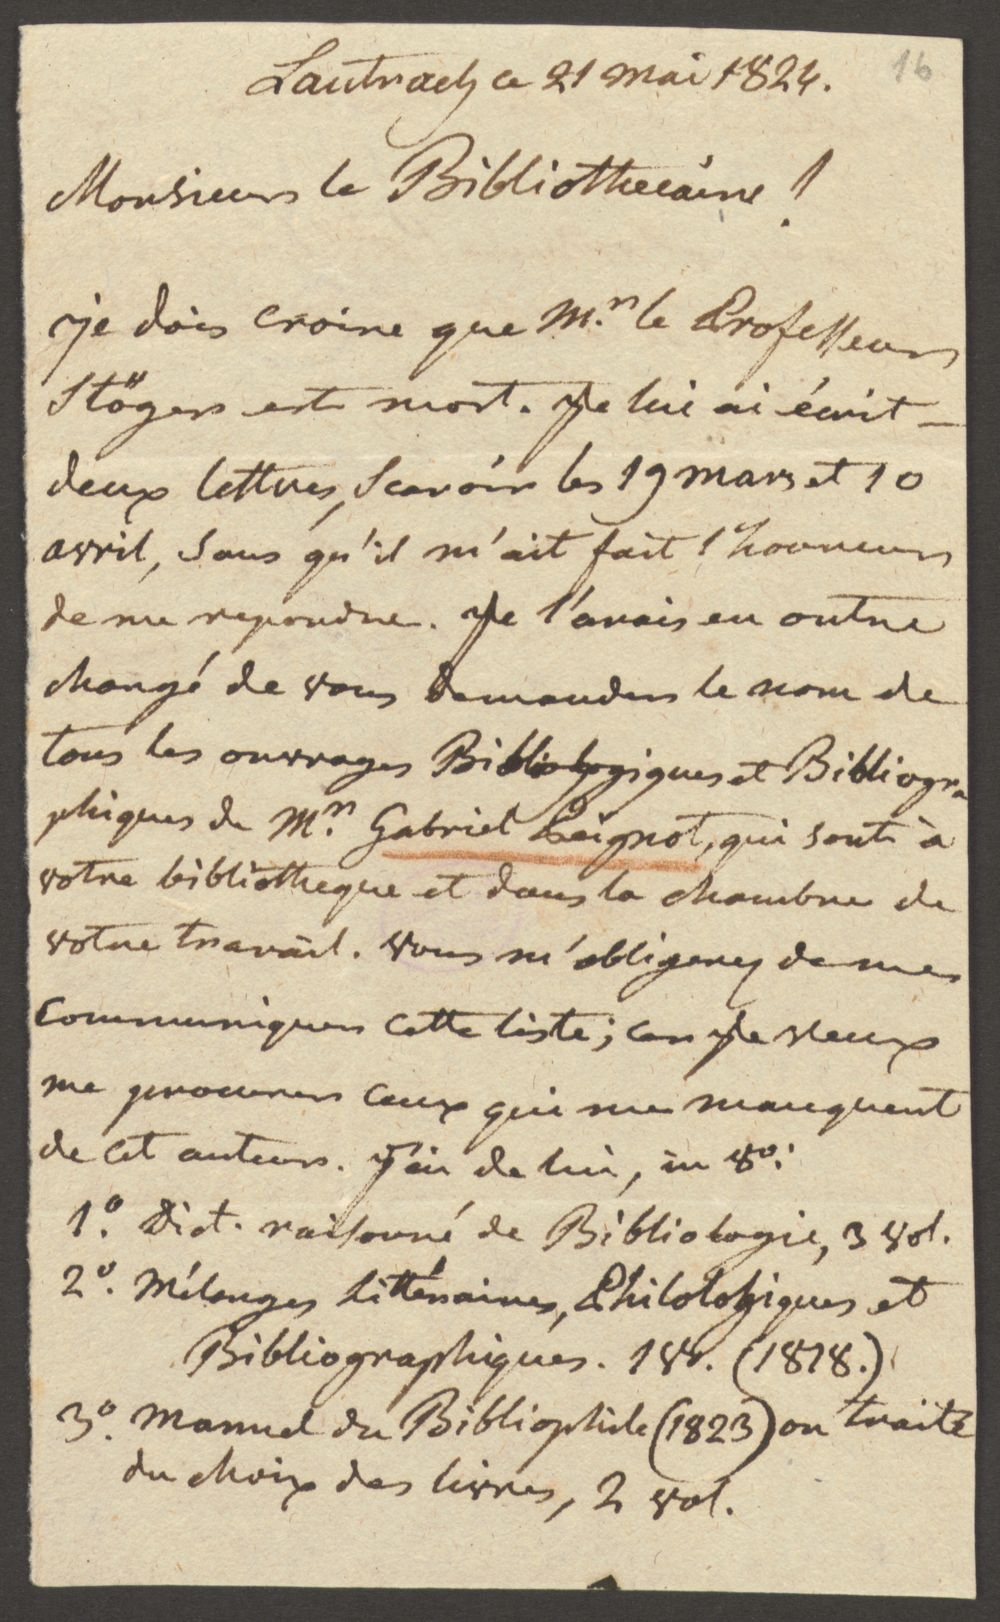 16
Lautrach ce 21 mai 1824.
Monsieur le Bibliothecaire !
Je dois croire que M.r le Professeur
Stöger est mort. Je lui ai écrit
deux lettres, Scavoir les 19 mars et 10
avril, sans qu'il m'ait fait l'honneur
de me repondre. Je l'avais en outre
chargé de vous demander le nom de
tous les ouvrages Bibliologiques et Bibliogra
phiques de M.r Gabriel Peignot, qui sont à
votre bibliotheque et dans la chambre de
votre travail. Vous m'obligerez de me
communiquer cette liste; car je veux
me procurer ceux qui me manquent
de cet auteur. J'ai de lui, in 8º:
1º. Dict. raisonné de Bibliologie, 3 vol.
2º. Mélanges Littéraires, Philologiques et
Bibliographiques. 1 v. (1818.)
3º. Manuel du Bibliophile (1823) ou traité
du choix des livres, 2 vol.